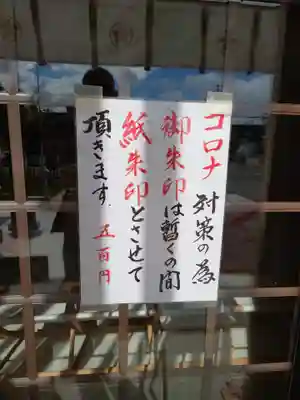 コロナ対策の為
御朱印は暫くの間
紙朱印とさせて
頂きます。五百円